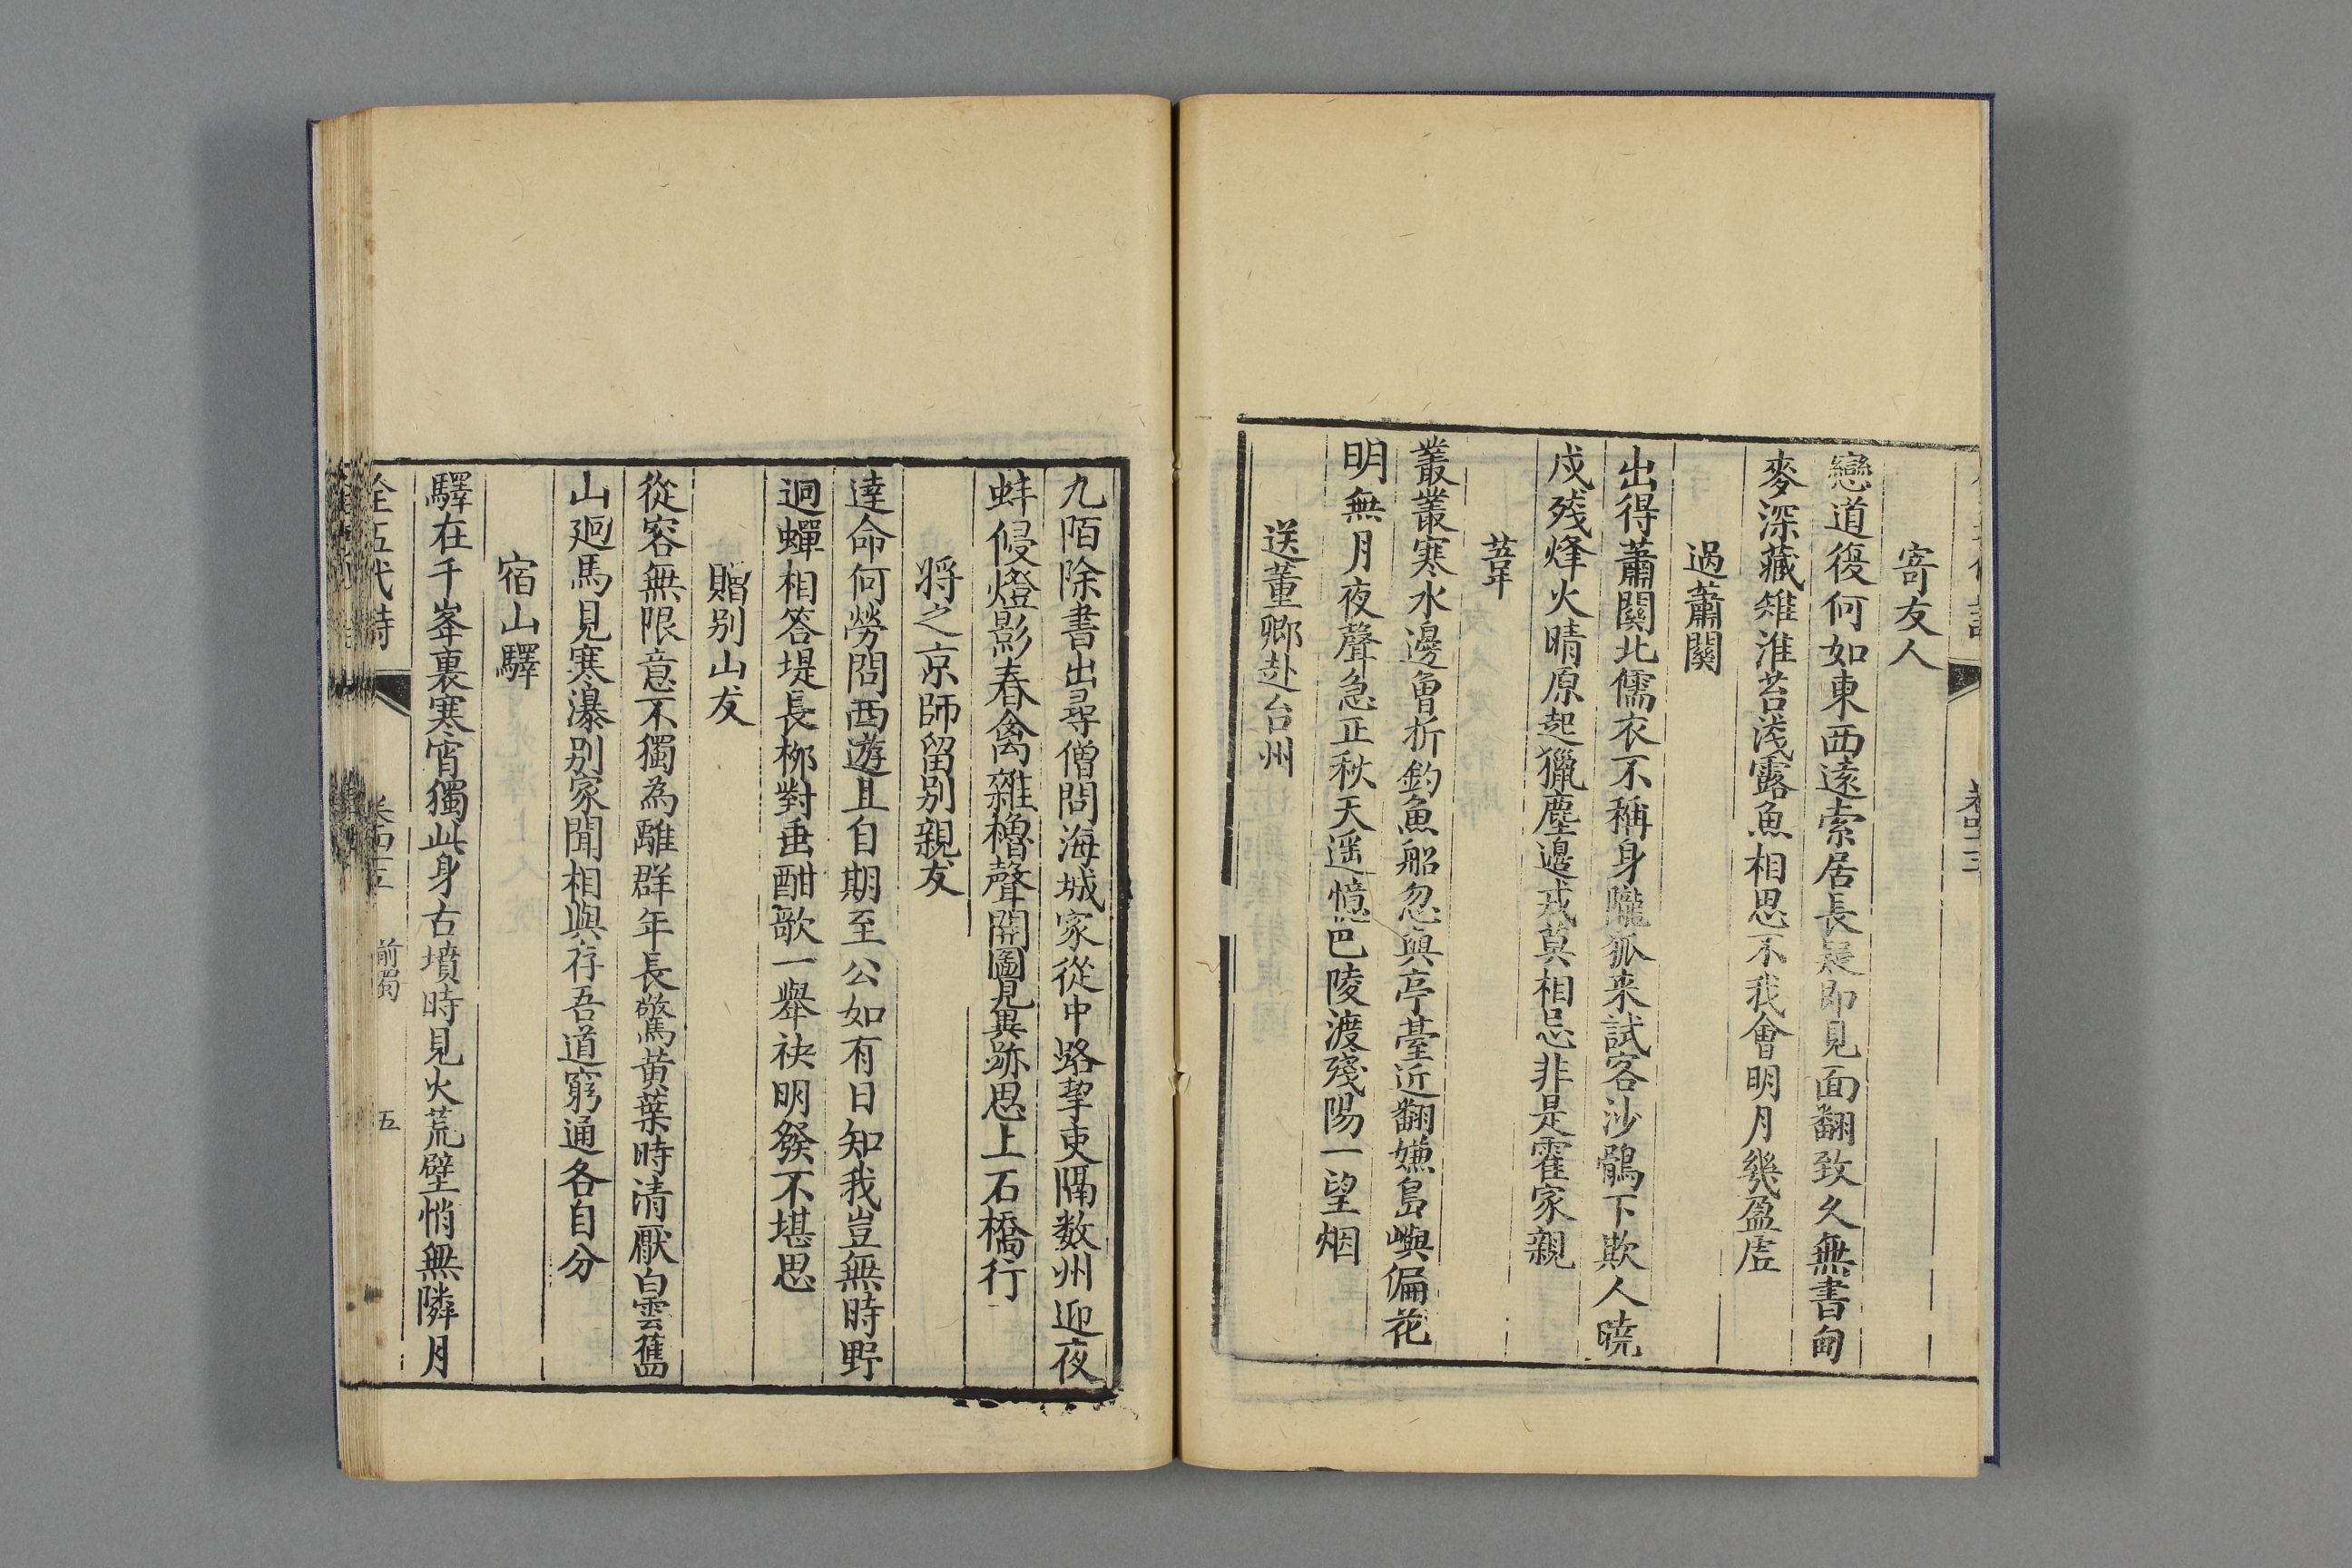 寄友人
戀道復何如東西遠索居長疑即見面翻致久無書甸
麥深藏雉淮苔淺露魚相思不我會明月幾盈虛
過蕭關
出得蕭關北儒衣不稱身隴狐来試客沙鶻下欺人暁
戍残烽火晴原起獵塵邊戎莫相忌非是霍家親
叢叢寒水邊曽折釣魚船忽與亭臺近翻嫌島嶼偏花
明無月夜聲急正秋天遥憶巴陵渡殘陽一望烟
送董卿赴台州
九陌除書出尋僧問海城家從中路挈吏隔数州迎夜
蚌侵燈影春禽雜櫓聲開圖見異跡思上石橋行
将之京師留别親友
達命何勞問西遊且自期至公如有日知我豈無時野
迥蟬相答堤長桞對垂酣歌一舉袂明發不堪思
贈别山友
從容無限意不獨為離群年長驚黄葉時清厭白雲舊
山廻馬見寒瀑别家聞相與存吾道窮通各自分
宿山驛
驛在千峯裏寒宵獨此身古墳時見火荒壁悄無隣月
全五代詩
前蜀
五